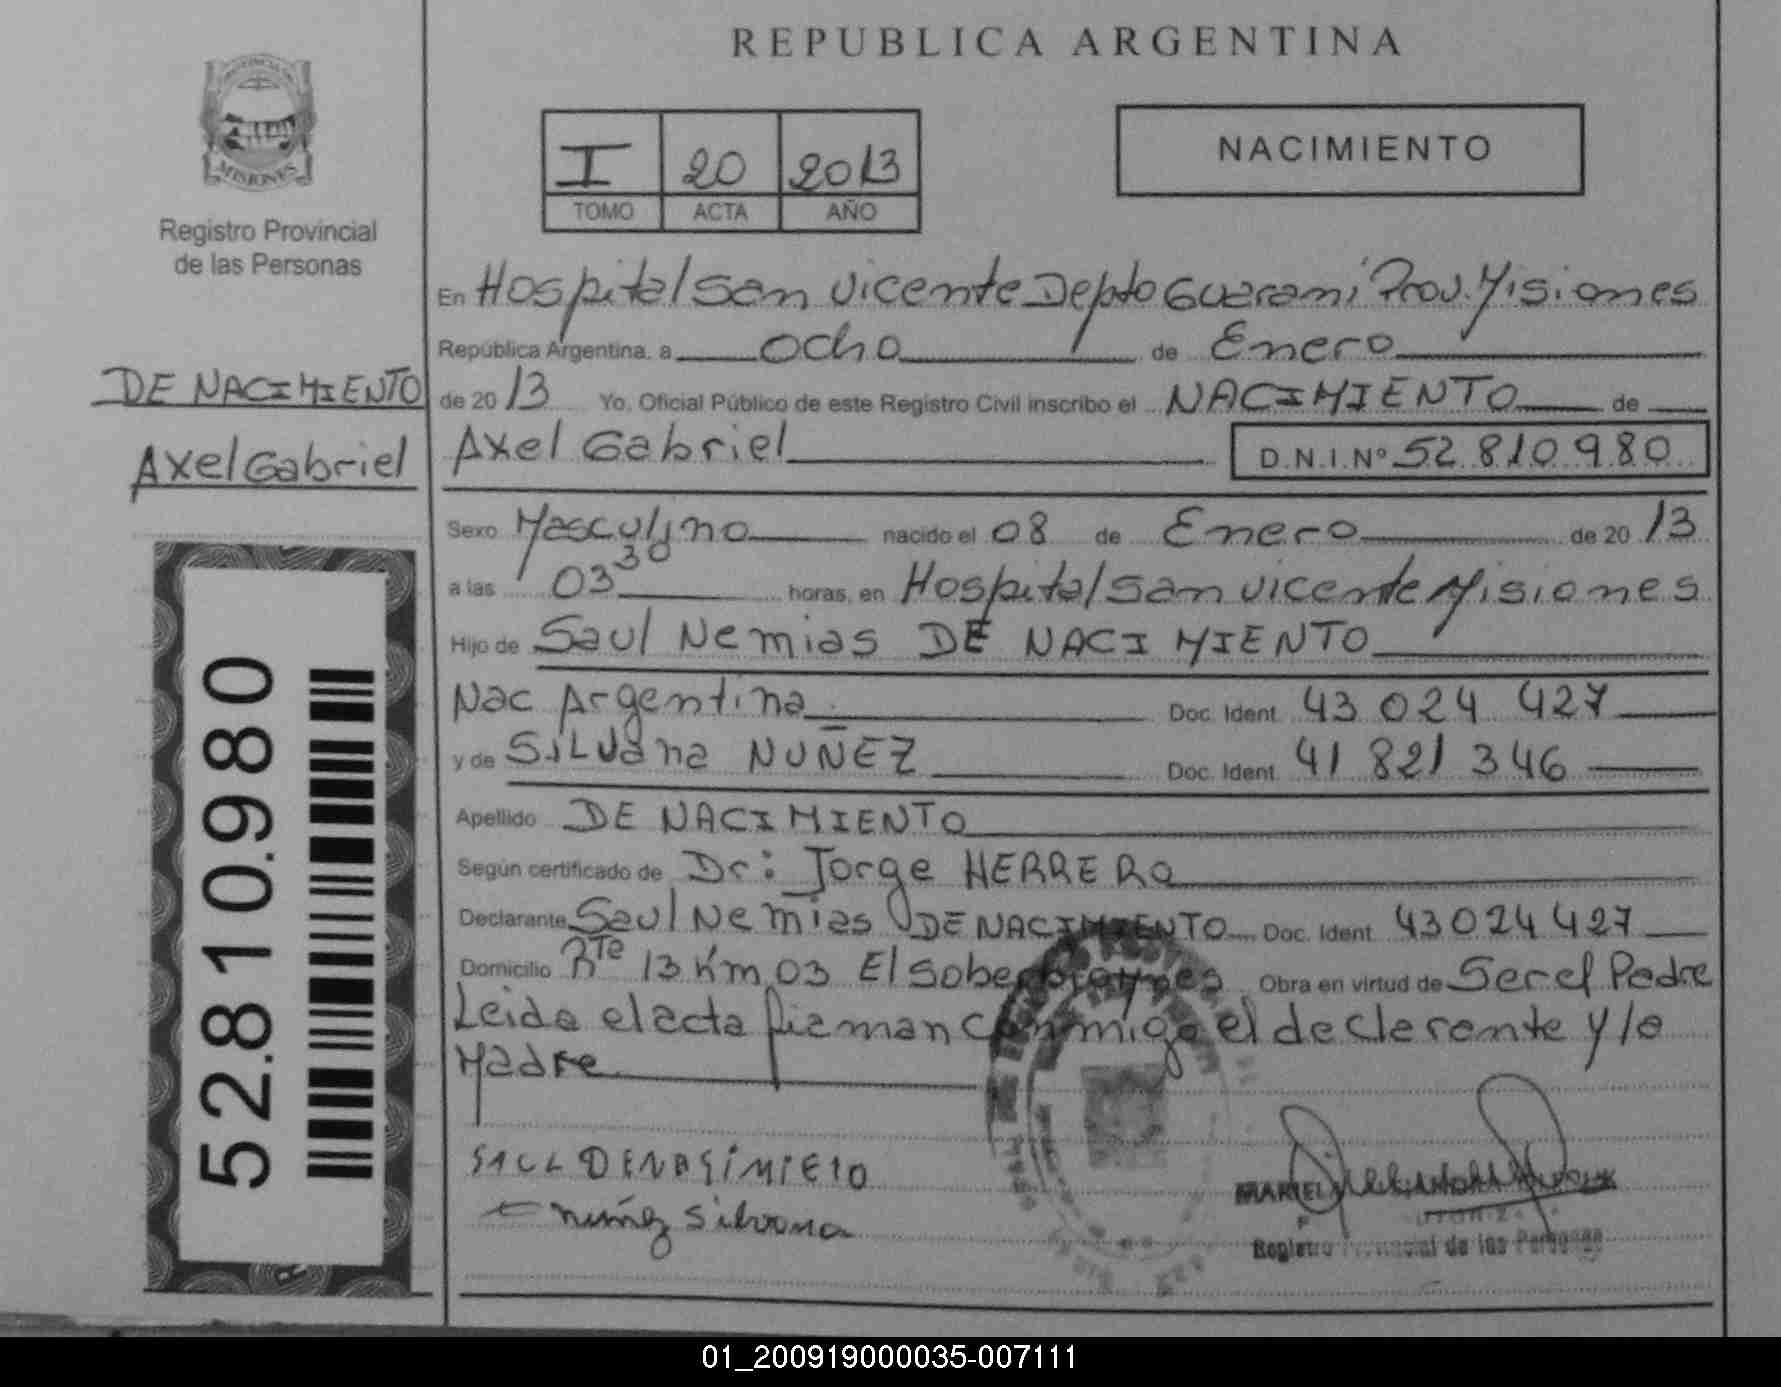 REPUBLICA ARGENTINA
PROVINCIA DE
MISIONES
Registro Provincial
de las Personas
I 20 2013
TOMO ACTA AÑO
NACIMIENTO
DE NACIMIENTO
Axel Gabriel
52.810.980
En Hospital San Vicente Depto Guarani Prov. Misiones
República Argentina, a ocho de Enero
de 2013 Yo, Oficial Público de este Registro Civil inscribo el NACIMIENTO de
Axel Gabriel D.N.I. Nº 52.810.980
Sexo Masculino nacido el 08 de Enero de 2013
a las 03 30 horas, en Hospital San Vicente Misiones
Hijo de Saul Nemias DE NACIMIENTO
Nac Argentina Doc. Ident. 43 024 427
y de SILVana NUÑEZ Doc. Ident. 41 821 346
Apellido DE NACIMIENTO
Según certificado de Dr: Jorge HERRERO
Declarante Saul Nemias DE NACIMIENTO Doc. Ident. 43024427
Domicilio Rte 13 Km 03 El Soberbio Obra en virtud de Ser el Padre
Leida el acta firman conmigo el declarante y la
Madre
SAUL DENASIMIETO
nuñez silvana
MARIEL
Registro Provincial de las Personas
01_200919000035-007111